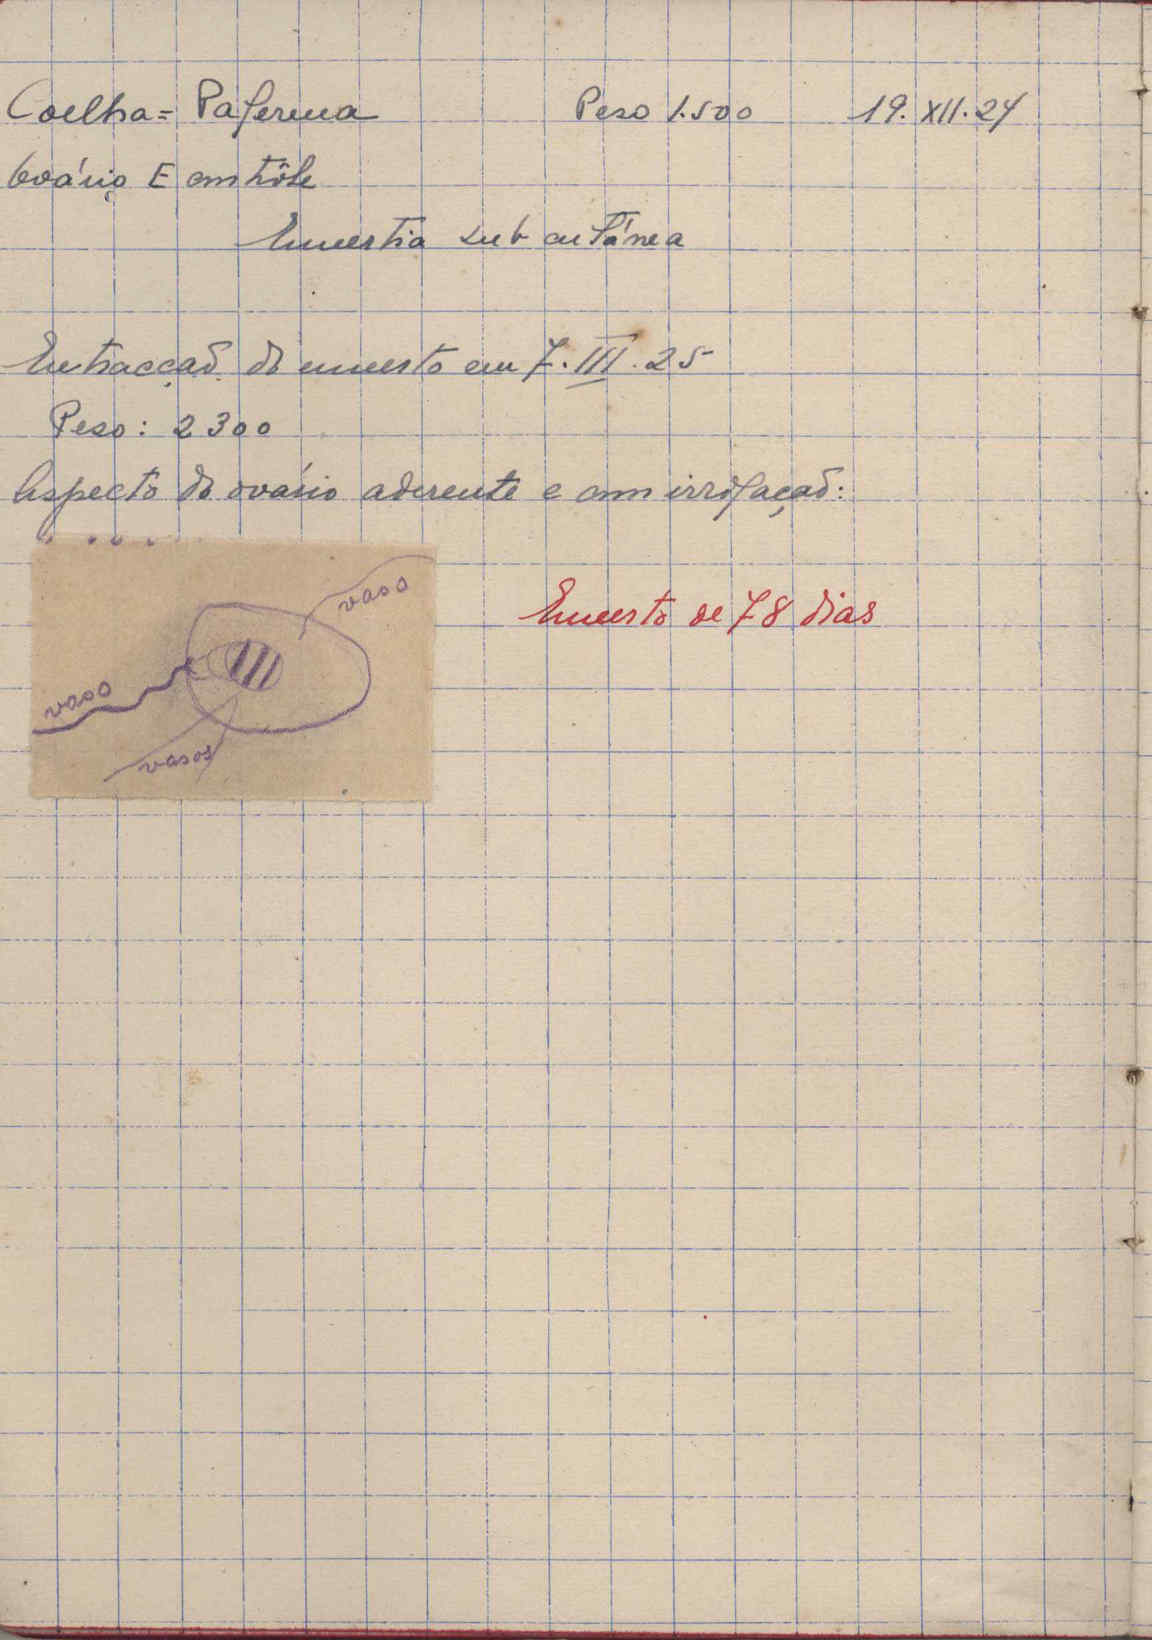 Coelha = Paferma Peso 1.500 19.XII.24
Ovário E contrôle
Enxertia subcutánea
Extracção do enxerto em 7.III.25
Peso: 2300
Aspecto do ovário aderente e com irrigação:
vaso
Enxerto de 78 dias
vaso
vasos